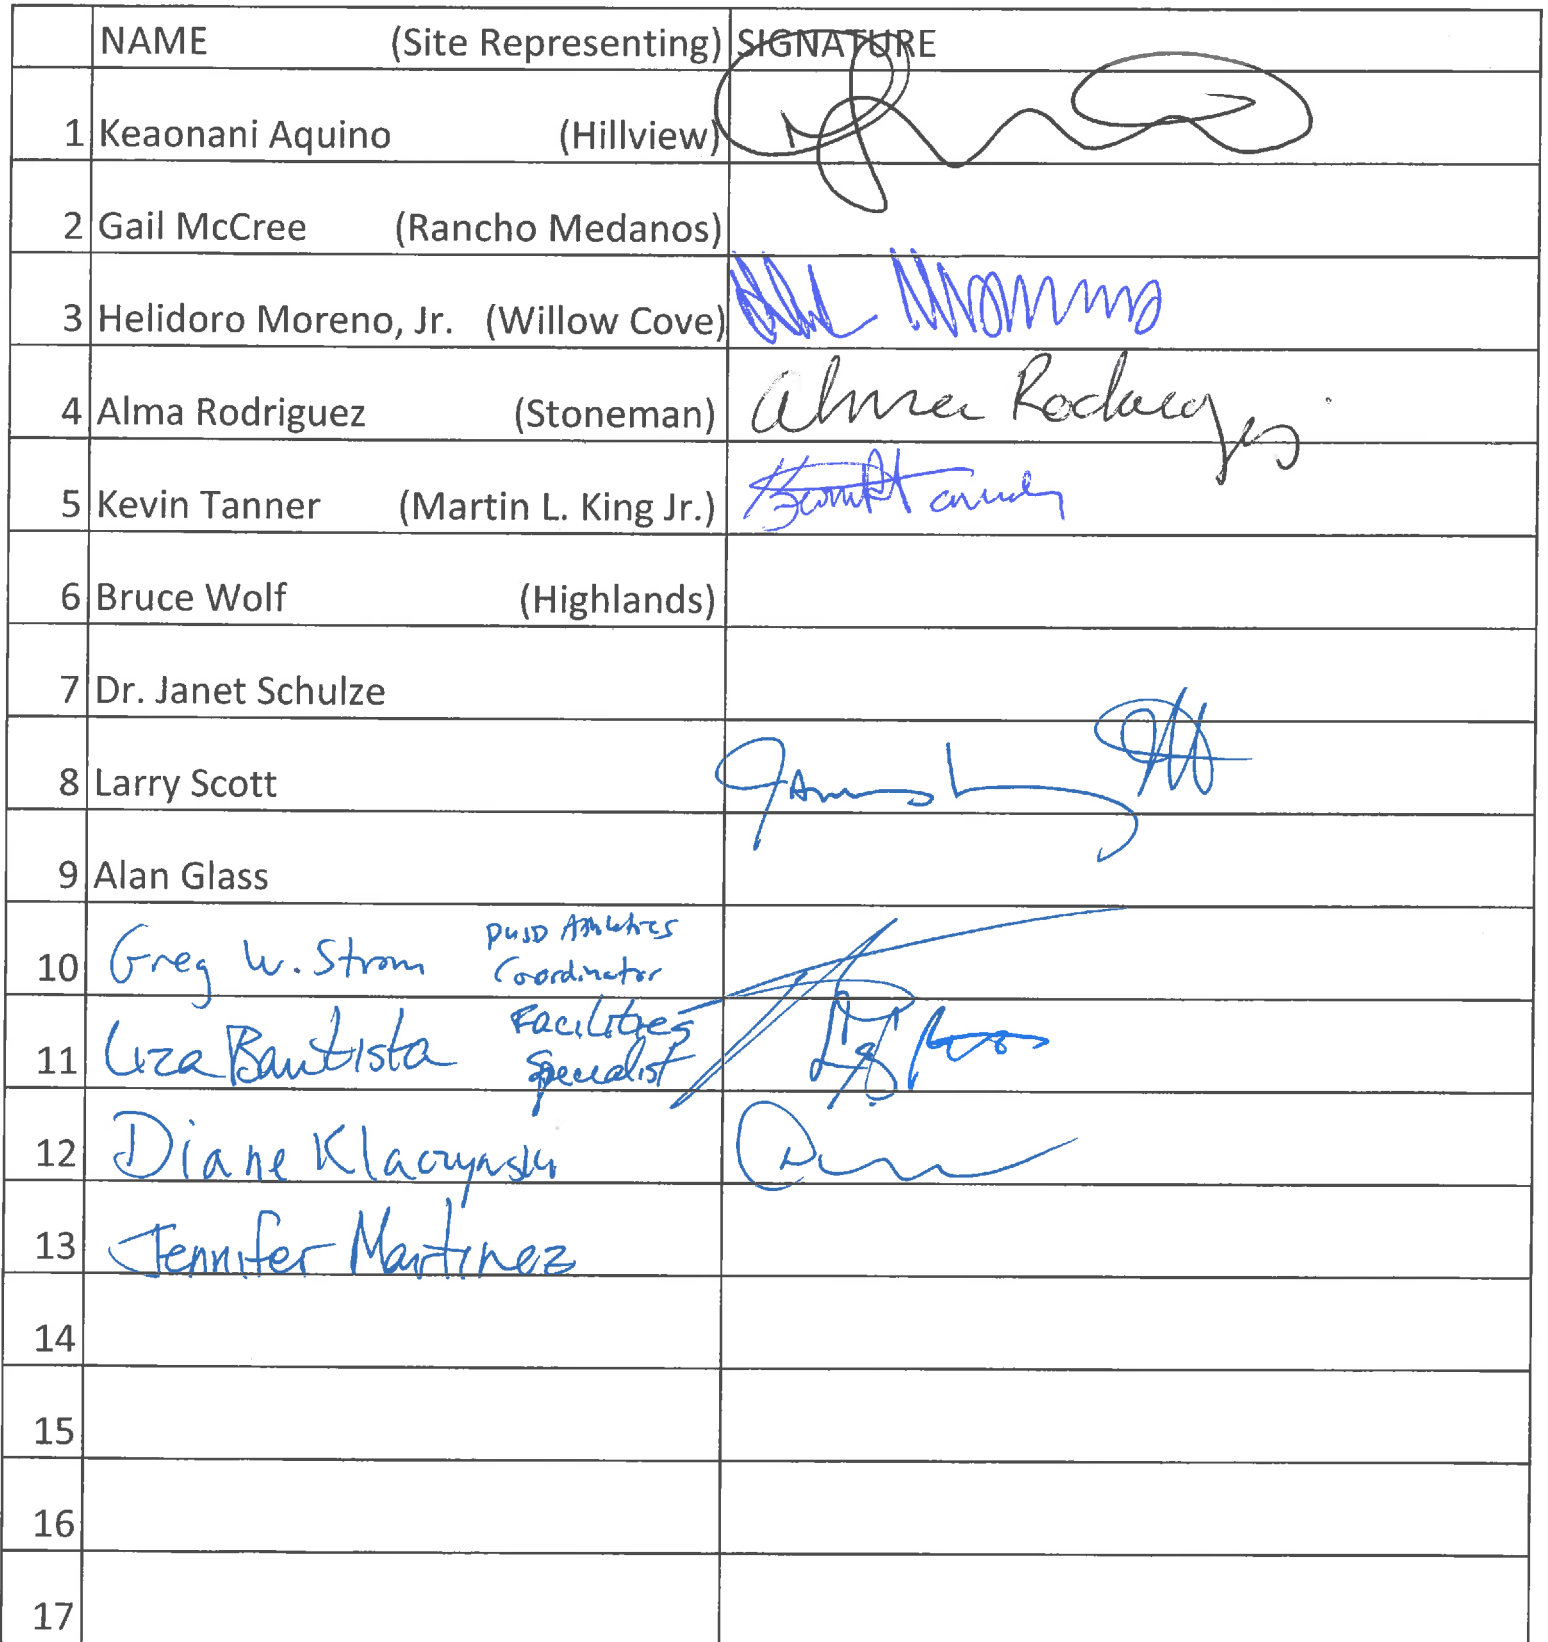 NAME (Site Representing) SIGNATURE
1 Keaonani Aquino (Hillview)
2 Gail McCree (Rancho Medanos)
3 Helidoro Moreno, Jr. (Willow Cove)
4 Alma Rodriguez (Stoneman) Alma Rodriguez
5 Kevin Tanner (Martin L. King Jr.)
6 Bruce Wolf (Highlands)
7 Dr. Janet Schulze
8 Larry Scott
9 Alan Glass
10 Greg W. Strom PUSD Athletics
Coordinator
11 Liza Bautista Facilities
Specialist
12 Diane Klaczynski
13 Jennifer Martinez
14
15
16
17